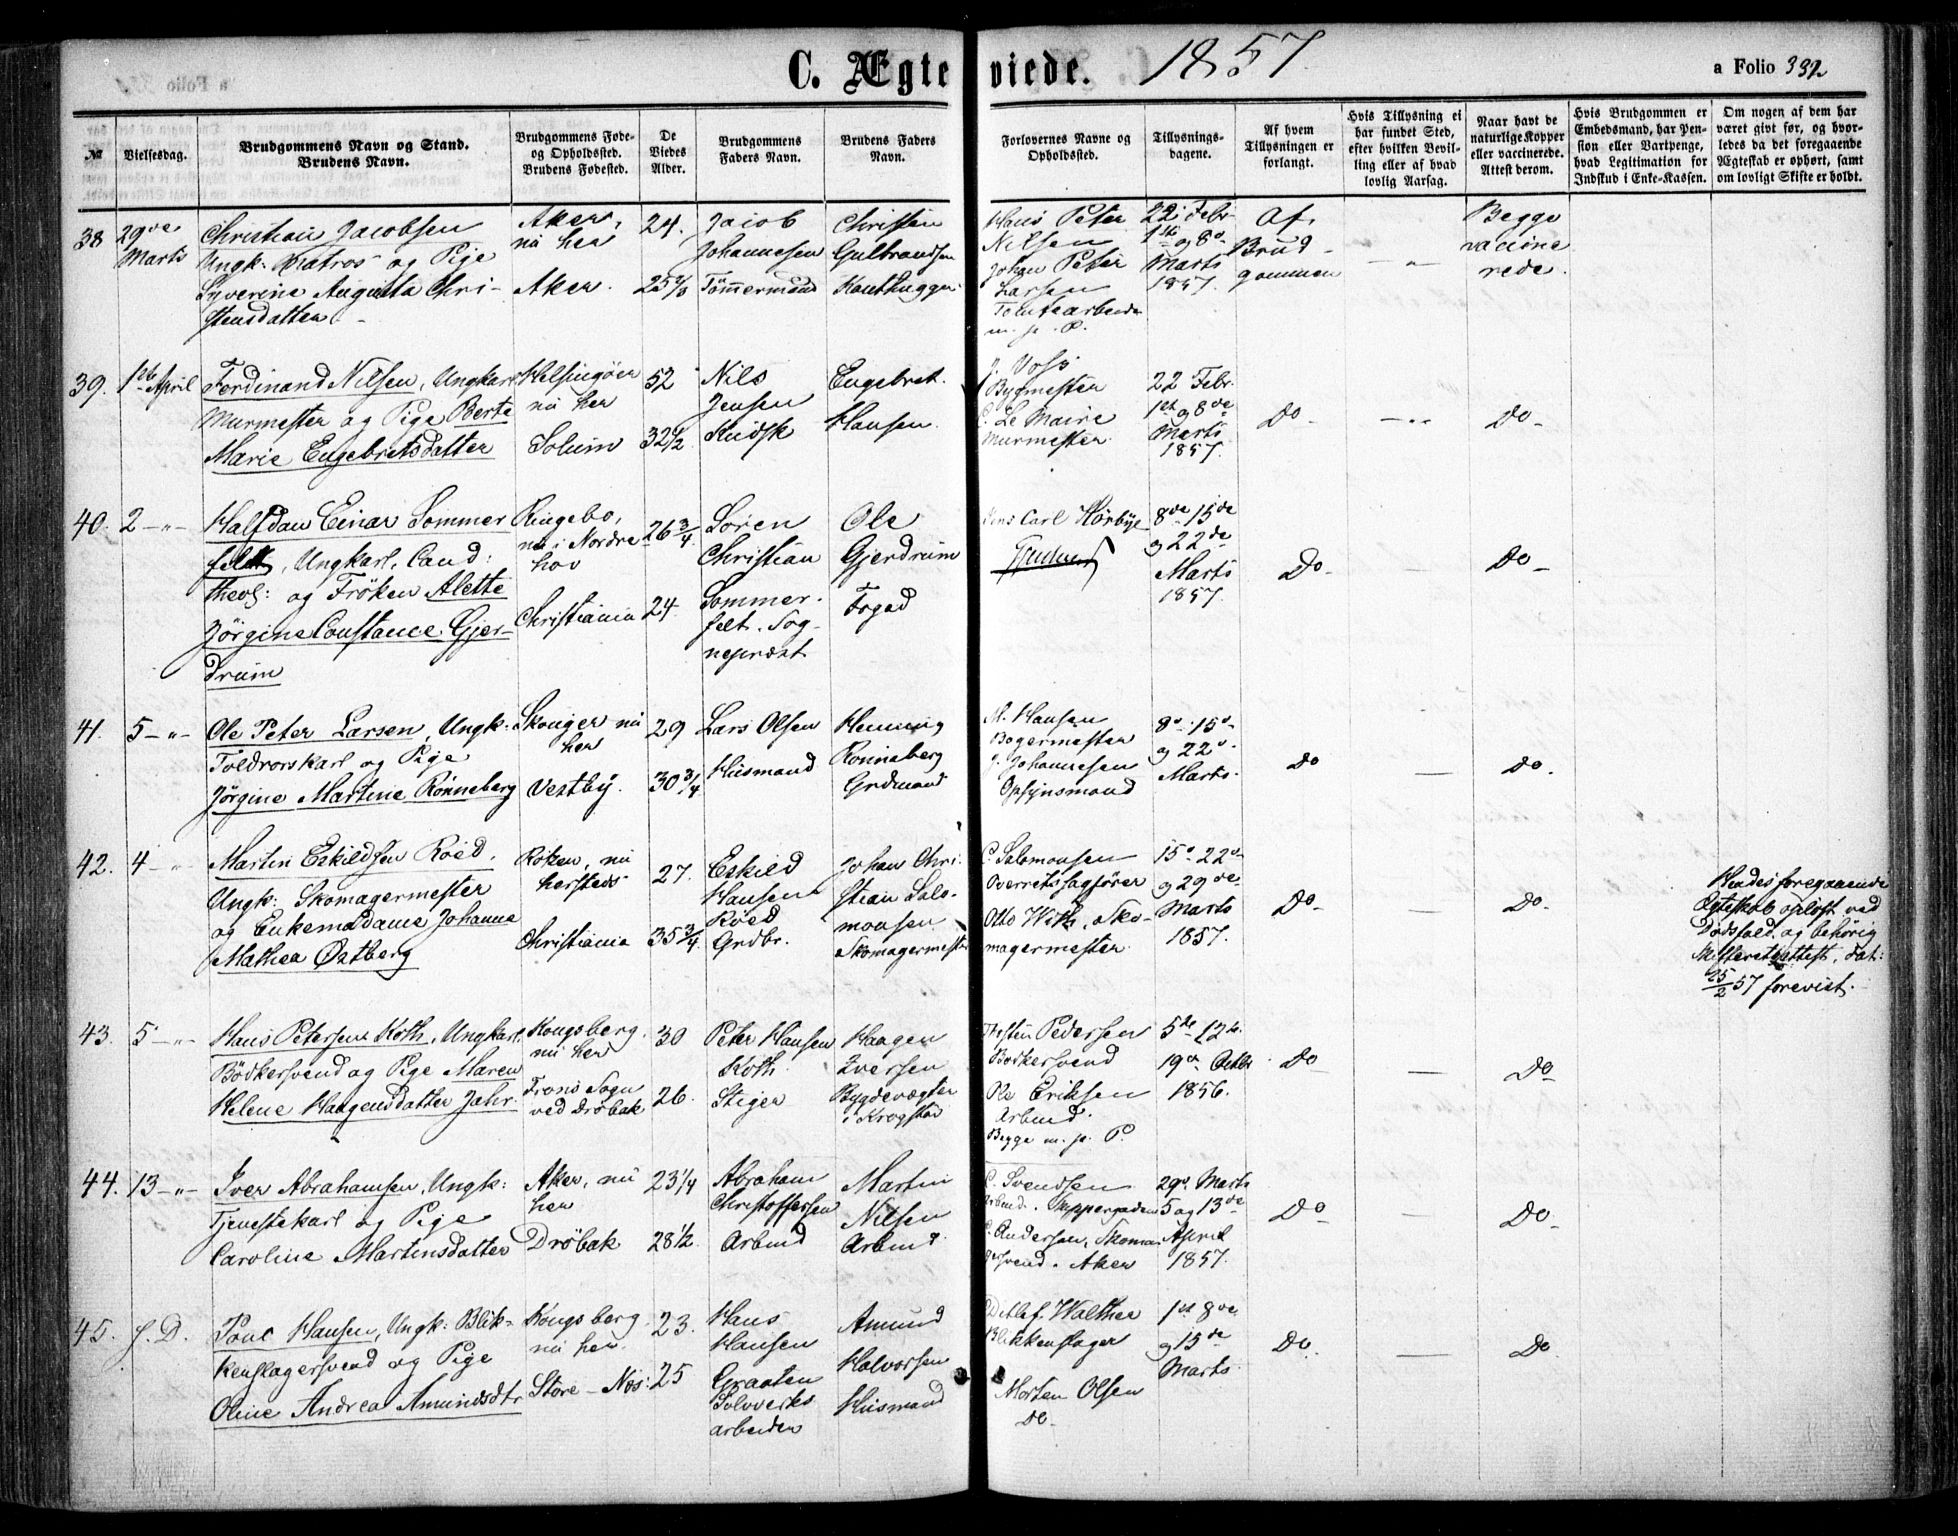 C. Ægteviede. 1857
a Folio 332
No
Vielsesdag.
Brudgommens Navn og Stand.
Brudens Navn.
Brudgommens Føde-
og Opholdssted.
Brudens Fødested.
De
Viedes
Alder.
Brudgommens
Faders Navn.
Brudens Faders
Navn.
Forlovernes Navne og
Opholdssted.
Tillysnings-
dagene.
Af hvem
Tillysningen er
forlangt.
Hvis Tillysning ei
har fundet Sted,
efter hvilken Bevil-
ling eller af hvad
lovlig Aarsag.
Naar havt de
naturlige Kopper
eller vaccinerede.
Attest derom.
Hvis Brudgommen er
Embedsmand, har Pen-
sion eller Vartpenge,
hvad Legitimation for
Indskud i Enke-Kassen.
Om nogen af dem har
været givt før, og hvor-
ledes da det foregaaende
Ægteskab er ophørt, samt
om lovligt Skifte er holdt.
38
29de
Marts
Christian Jacobsen
Ungk. Matros og Pige
Syverine Augusta Chri-
stensdatter
Aker,
nu her
Aker.
24.
25
Jacob
Johannesen
Tømmermand
Christen
Gulbrandsen
Hans Peter
Nilsen
Johan Peter
Larsen
m. p. P.
22 Febr
1ste og 8de
Marts
1857.
Af
Brud-
gommen
— " —
Begge
vaccine
rede.
39.
1ste April
Ferdinand Nilsen, Ungkarl
Murmester og Pige Berte
Marie Engebretsdatter
Helsingøer
nu her
Solum
52
32 1/2
Nils
Jensen
Kudsk
Engebret
Hansen
J. Voss
Bygmester
C. Le Maire
Murmester
22 Febr.
1ste og 8de
Marts
1857.
Do
— " —
Do
40.
2 — " —
Halfdan Einar Sommer
feldt, Ungkarl, Cand:
theol: og Frøken Alette
Jörgine Constance Gjer-
drum
Ringebo,
nu i Nordre
hov
Christiania
26 3/4
24.
Sören
Christian
Sommer-
felt. Sog-
nepræst
Ole
Gjerdrum
Foged
Jens Carl Hörbye
8de 15de
og 22de
Marts
1857.
Do
—
Do
41.
5 — " —
Ole Peter Larsen, Ungk:
Toldrorskarl og Pige
Jörgine Martine Rönneberg
Skouger nu
her
Vestby.
29
30 3/4
Lars Olsen
Husmand
Henning
Ronneberg
Grdmand
M. Hansen
Bagermester
J. Johannesen
Opsynsmand
8de 15de
og 22de
Marts.
Do
—
Do.
42.
4 — " —
Martin Eskildsen Röed,
Ungk: Skomagermester
og Enkemadame Johanne
Mathea Østberg
Röken, nu
hersteds
Christiania
27.
35 3/4
Eskild
Hansen
Röed
Grdbr.
Johan Chri-
stian Salo-
monsen
Skomagermester
C. Salomonsen
Overretssagförer
Otto With, Sko-
magermester
15de 22de
og 29de
Marts
1857.
Do
—
Do
Hendes foregaaende
Ægteskab oplöst ved
Dödsfald og behörig
Skifteretsattest, dat:
25/2 57 forevist.
43.
5 — " —
Hans Petersen Koth, Ungkarl
Bödkersvend og Pige Maren
Helene Haagensdatter Jahr
Kongsberg
nu her
Frons Sogn
ved Dröbak
30
26.
Peter Hansen
Koth
Stiger
Haagen
Iversen
Bygdevægter
i Krogstad
Pedersen
Bödkersvend
Ole Eriksen
Arbmd.
Begge m. p. P.
5te 12te
19de Octbr
1856.
Do
Do
44.
13 — " —
Iver Abrahamsen, Ungk:
Tjenestekarl og Pige
Caroline Martinsdatter
Aker, nu
her
Dröbak
23 1/4
28 1/2
Abraham
Christoffersen
Arbmd
Martin
Nilsen
Arbmd
C. Svendsen
Arbmd. Skippergaden
C. Andersen, Skoma-
gersvend. Aker
29de Marts
5 og 13de
April
1857.
Do
—
Do
45.
s. D.
Poul Hansen, Ungk: Blik-
kenslagersvend og Pige
Oline Andrea Amundsdtr
Kongsberg
nu her
Store-Næs:
23.
25
Hans
Hansen
Graaten
Sölvverks
arbeider
Amund
Halvorsen
Husmand
Detlef Walther
Blikkenslager
Morten Olsen
Do
1ste 8de
og 15de
Marts
Do
—
Do